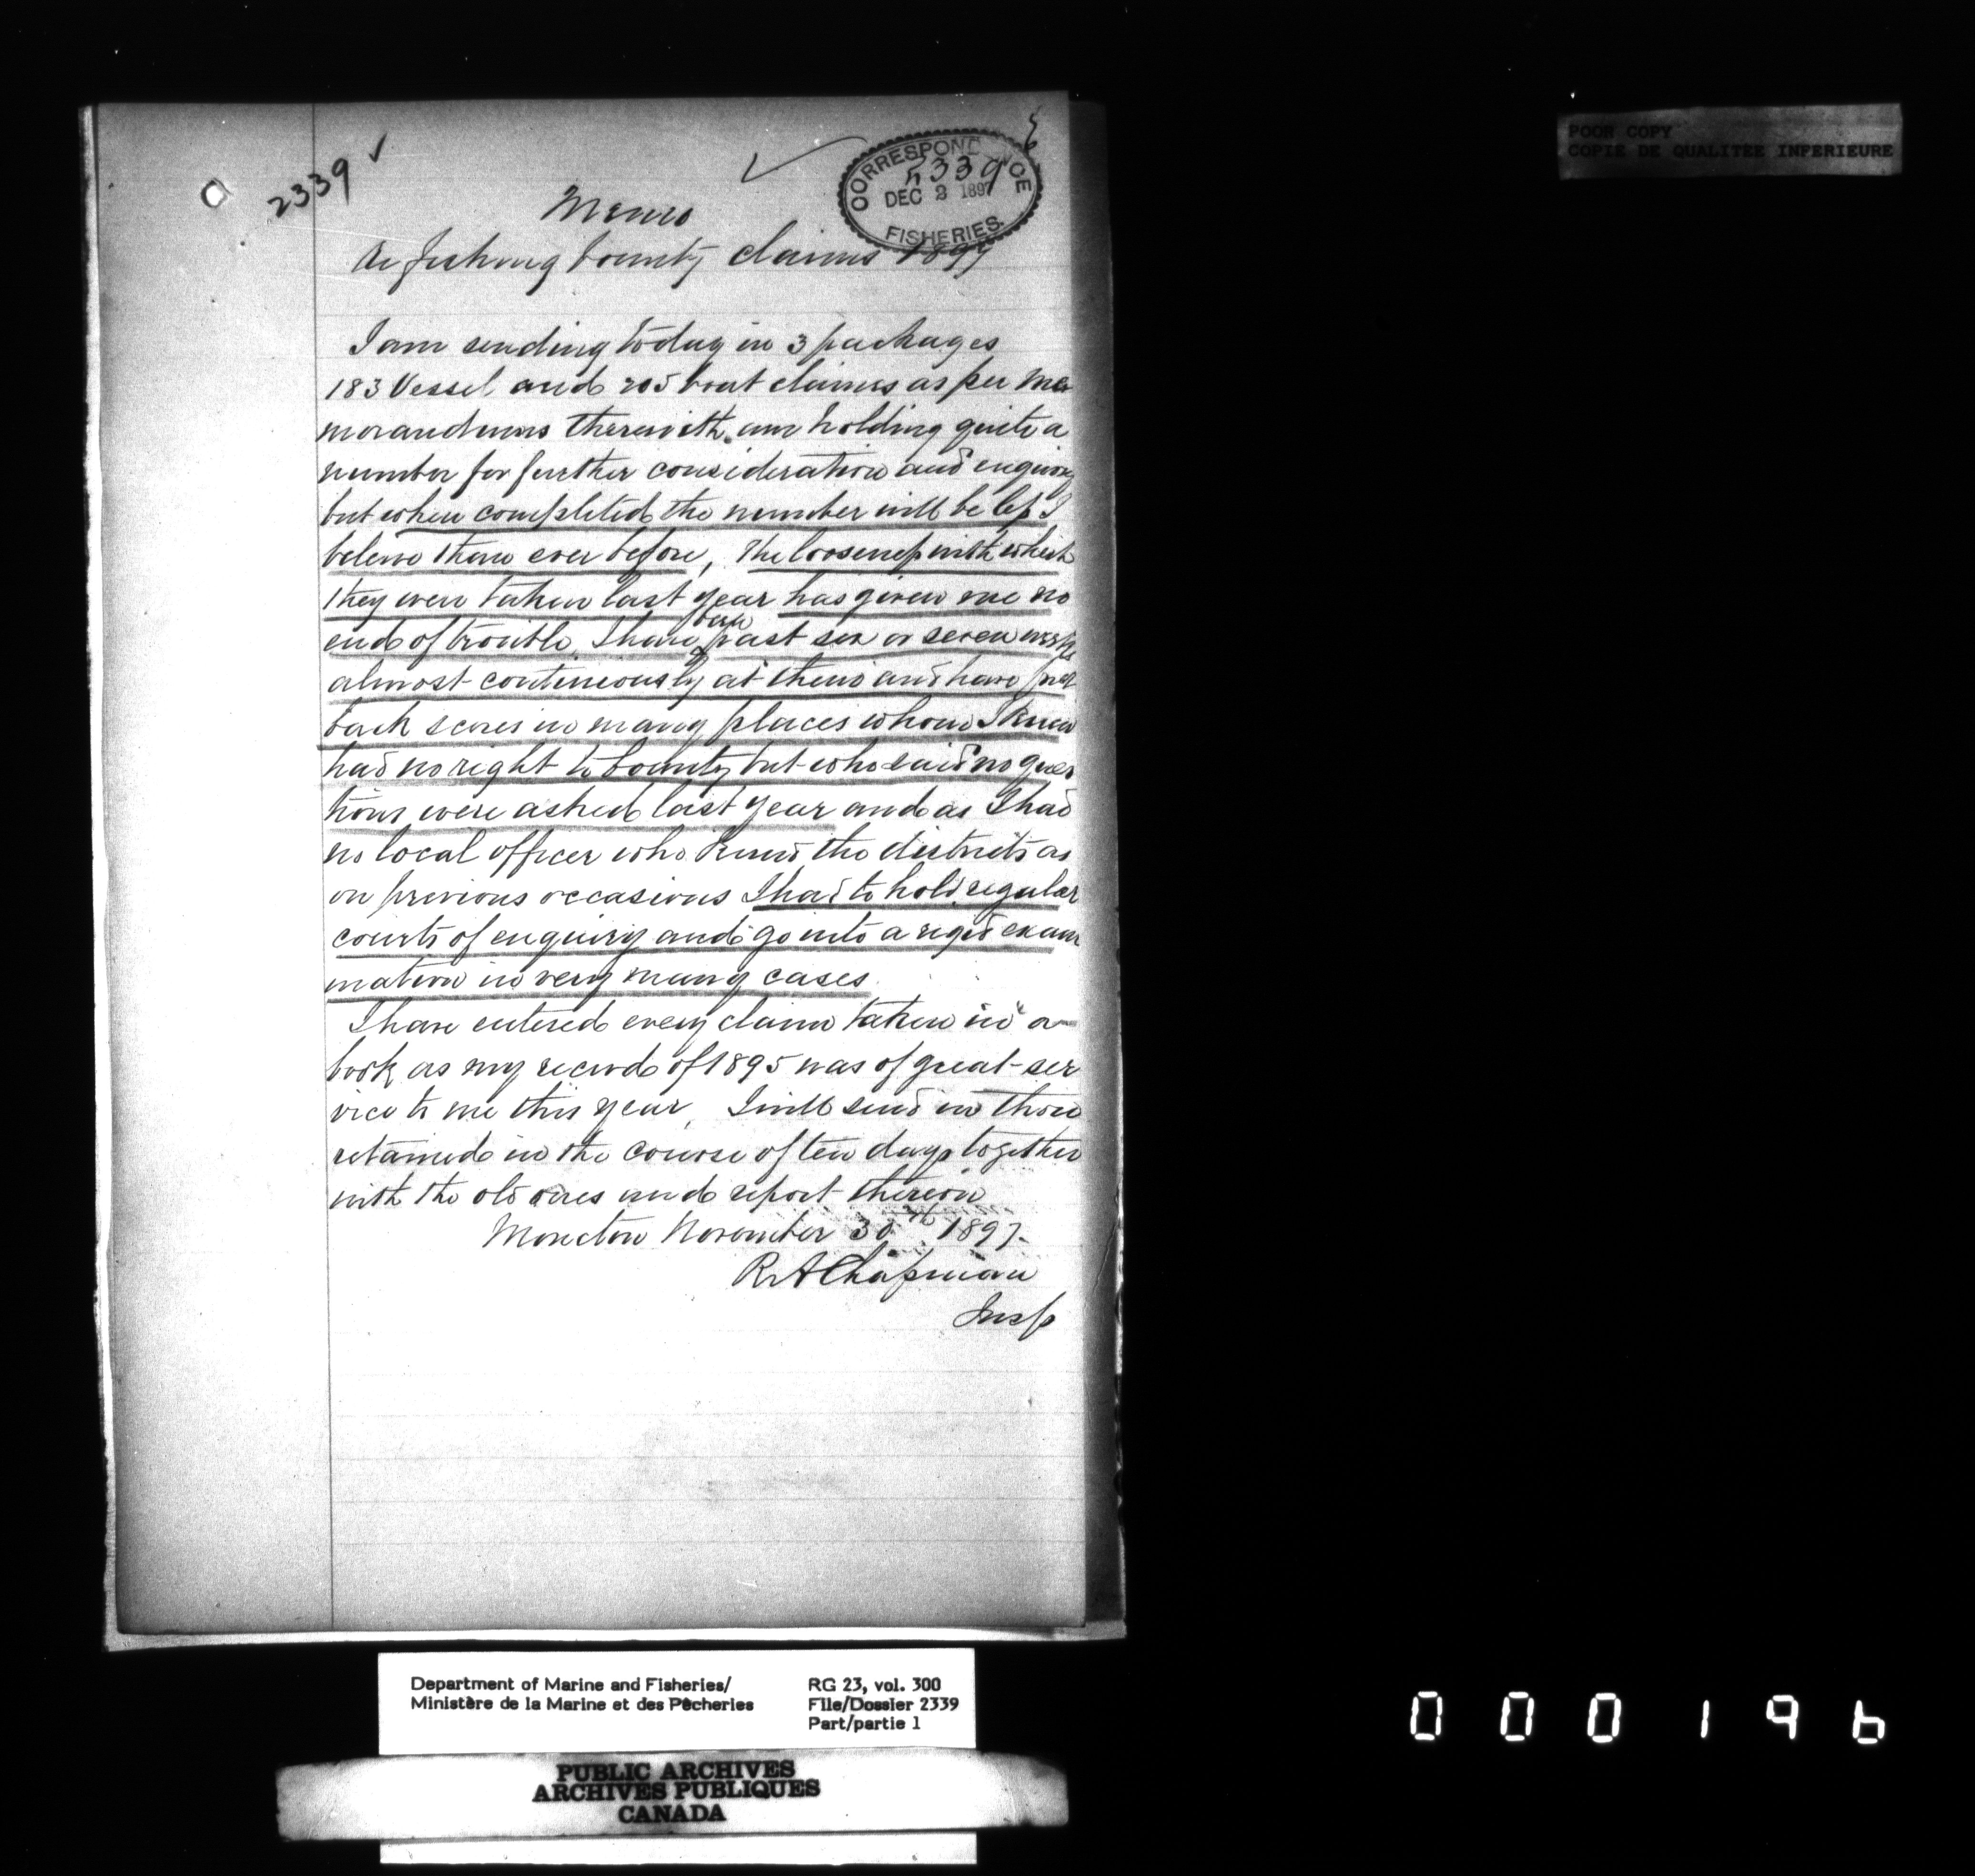 2339 ✓
CORRESPONDENCE
2339
DEC 2 1897
FISHERIES
Memo
Re fishing bounty claims 1897
I am sending today in 3 packages
183 Vessel and 205 boat claims as per me
morandums therewith. am holding quite a
number for further consideration and enquiry
but when completed the number will be less I
beleive than ever before, The looseness with which
they were taken last year has given me no
end of trouble, I have been past six or seven weeks
almost continuously at them and have put
back scores in many places whom I knew
had no right to bounty but who said no ques
tions were asked last year and as I had
no local officer who knew the districts as
on previous occasions I had to hold regular
courts of enquiry and go into a rigid exam
mation in very many cases.
I have entered every claim taken in a
book as my record of 1895 was of great ser
vice to me this year, I will send in those
retained in the course of ten days together
with the old ones and report thereon
Moncton November 30th 1897.
R A Chapman
Insp
POOR COPY
COPIE DE QUALITEE INFERIEURE
Department of Marine and Fisheries/
Ministère de la Marine et des Pêcheries
RG 23, vol. 300
File/Dossier 2339
Part/partie 1
PUBLIC ARCHIVES
ARCHIVES PUBLIQUES
CANADA
000196